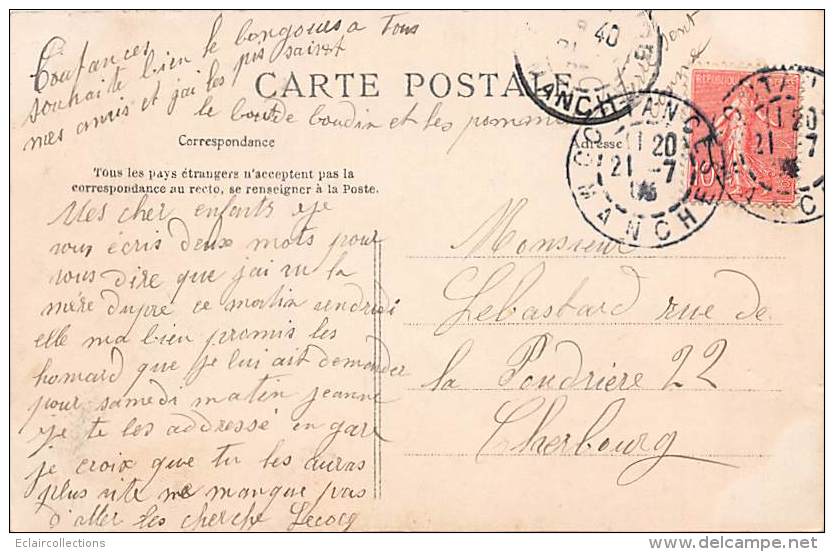 Coutances
souhaite bien le bongoues a tous
mes amis et j'ai les pis saint
le bout de boudin et les pomme
CARTE POSTALE
Correspondance
Adresse
Tous les pays étrangers n'acceptent pas la
correspondance au recto, se renseigner à la Poste.
Mes cher enfants je
vous écris deux mots pour
vous dire que j'ai vu la
mère dupré ce matin vendredi
elle ma bien promis les
homard que je lui ait demander
pour samedi matin jeanne
je te les addressé en gare
je croix que tu les auras
plus vite ne manque pas
d'aller les cherche Lecocq
Monsieur
Lebastard rue de
la Poudrière 22
Cherbourg
COUTANCES
11 20
21 -7
MANCHE
40
MANCHE
11 20
21 -7
10
Eclaircollections
www.delcampe.net